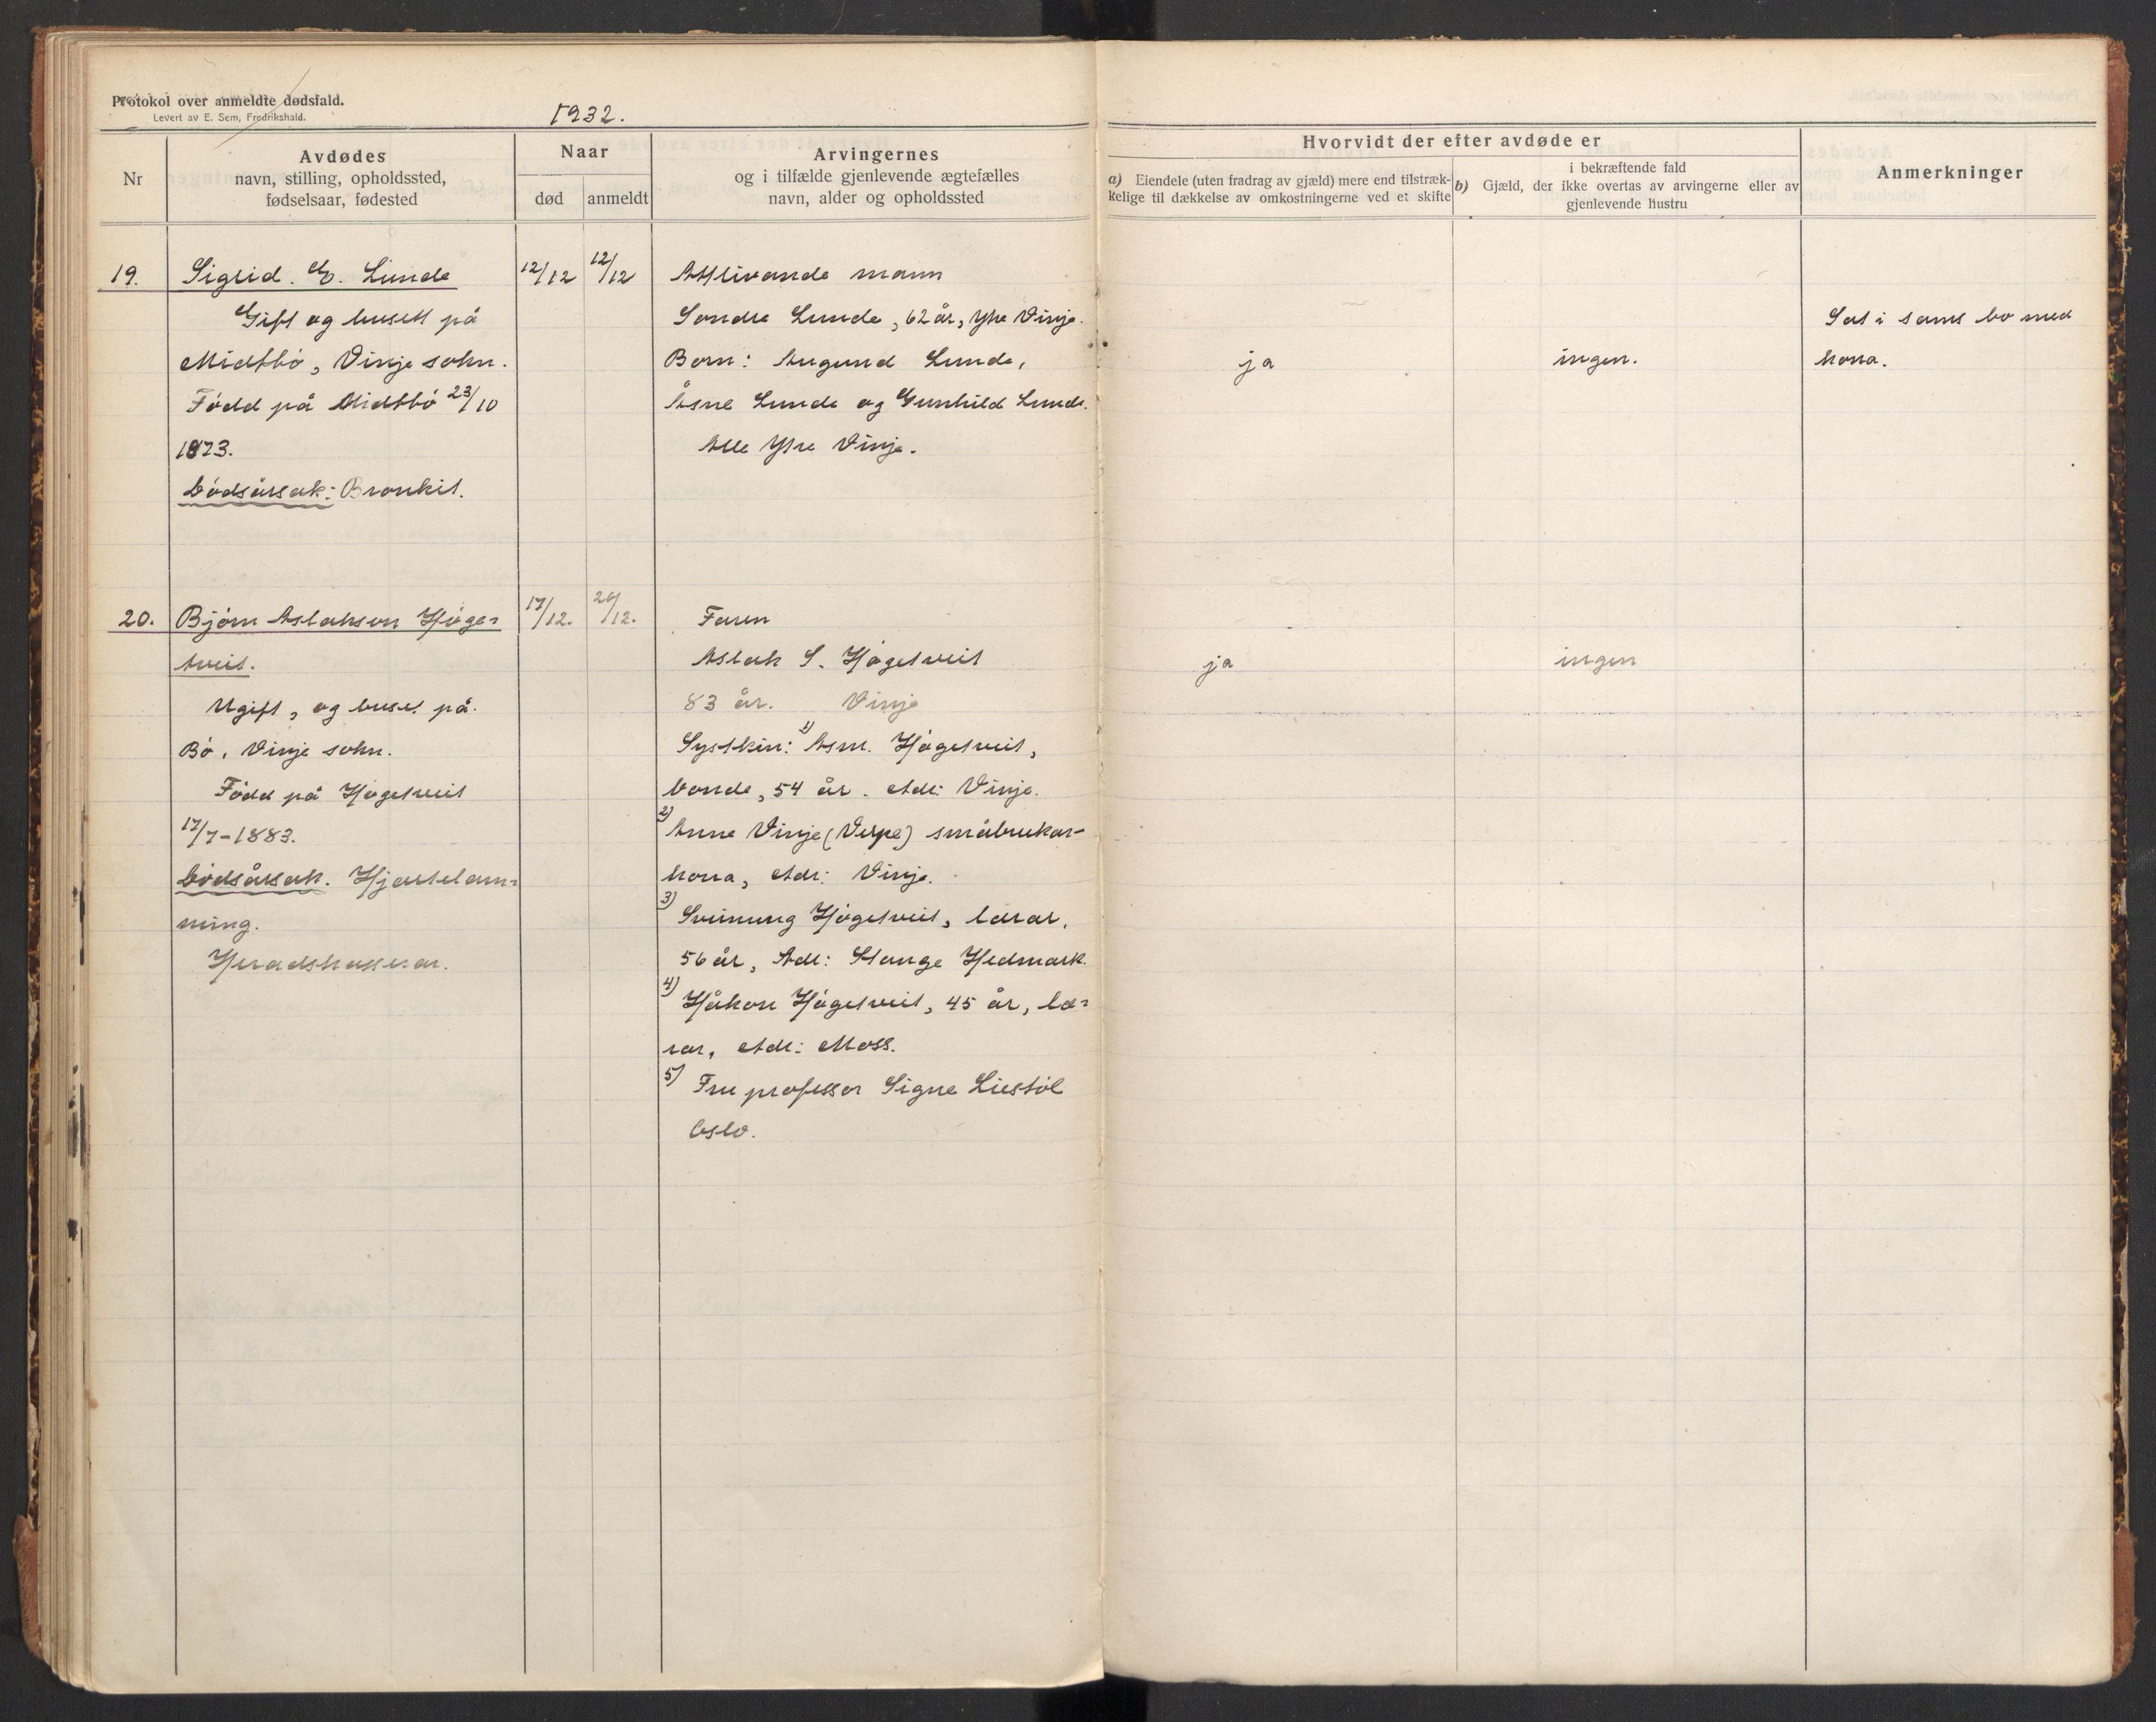 Protokol over anmeldte dødsfald.
Levert av E. Sem, Fredrikshald.
1932.
Nr
Avdødes
navn, stilling, opholdssted,
fødselsaar, fødested
Naar
død
anmeldt
Arvingernes
og i tilfælde gjenlevende ægtefælles
navn, alder og opholdssted
Hvorvidt der efter avdøde er
a) Eiendele (uten fradrag av gjæld) mere end tilstræk-
kelige til dækkelse av omkostningerne ved et skifte
i bekræftende fald
b) Gjæld, der ikke overtas av arvingerne eller av
gjenlevende hustru
Anmerkninger
19.
Sigrid. E. Lunde
Gift og busett på
Midtbö, Vinje sokn.
Född på Midtbö 23/10
1873.
Dödsårsak: Bronkit.
12/12
12/12
Attlivande mann
Sondre Lunde, 62 år, Ytre Vinje.
Born: Augund Lunde,
Åsne Lunde og Gunhild Lunde.
Alle Ytre Vinje.
ja
ingen.
Sat i sams bo med
kona.
20.
Björn Aslakson Höge=
tveit.
Ugift, og buset på
Bö, Vinje sokn.
Född på Högetveit
17/7-1883.
Dödsårsak. Hjartelam=
ning.
Heradskasserar.
17/12.
20/12.
Faren
Aslak S. Högetveit
83 år. Vinje
Syskin: 1) Asm. Högetveit,
bonde, 54 år. Adr: Vinje.
2) Anne Vinje (Verpe) småbrukar-
kona, Adr: Vinje.
3) Sveinung Högetveit, lærar,
56 år, Adr: Stange Hedmark.
4) Håkon Högetveit, 45 år, læ=
rar, Adr: Moss.
5) Fru professor Signe Liestöl
Oslo.
ja
ingen